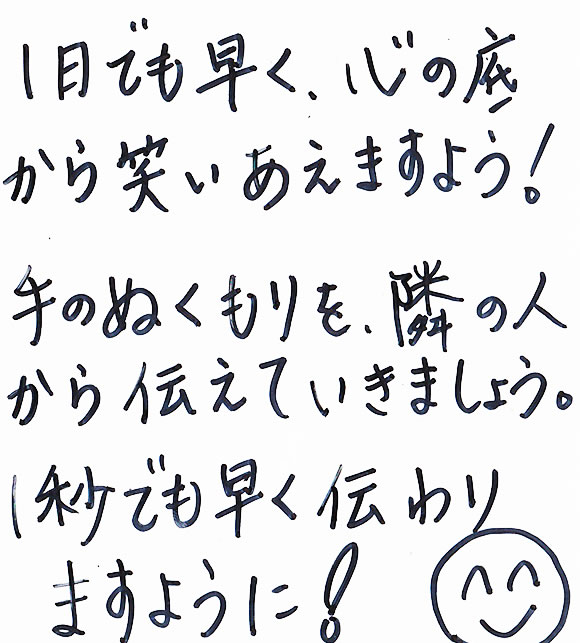 1日でも早く、心の底
から笑いあえますよう!
手のぬくもりを、隣の人
から伝えていきましょう。
1秒でも早く伝わり
ますように!